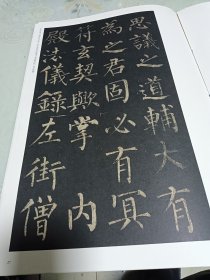 思議之道輔大有
為之君固必有冥
符玄契歟掌內
殿法儀錄左街僧